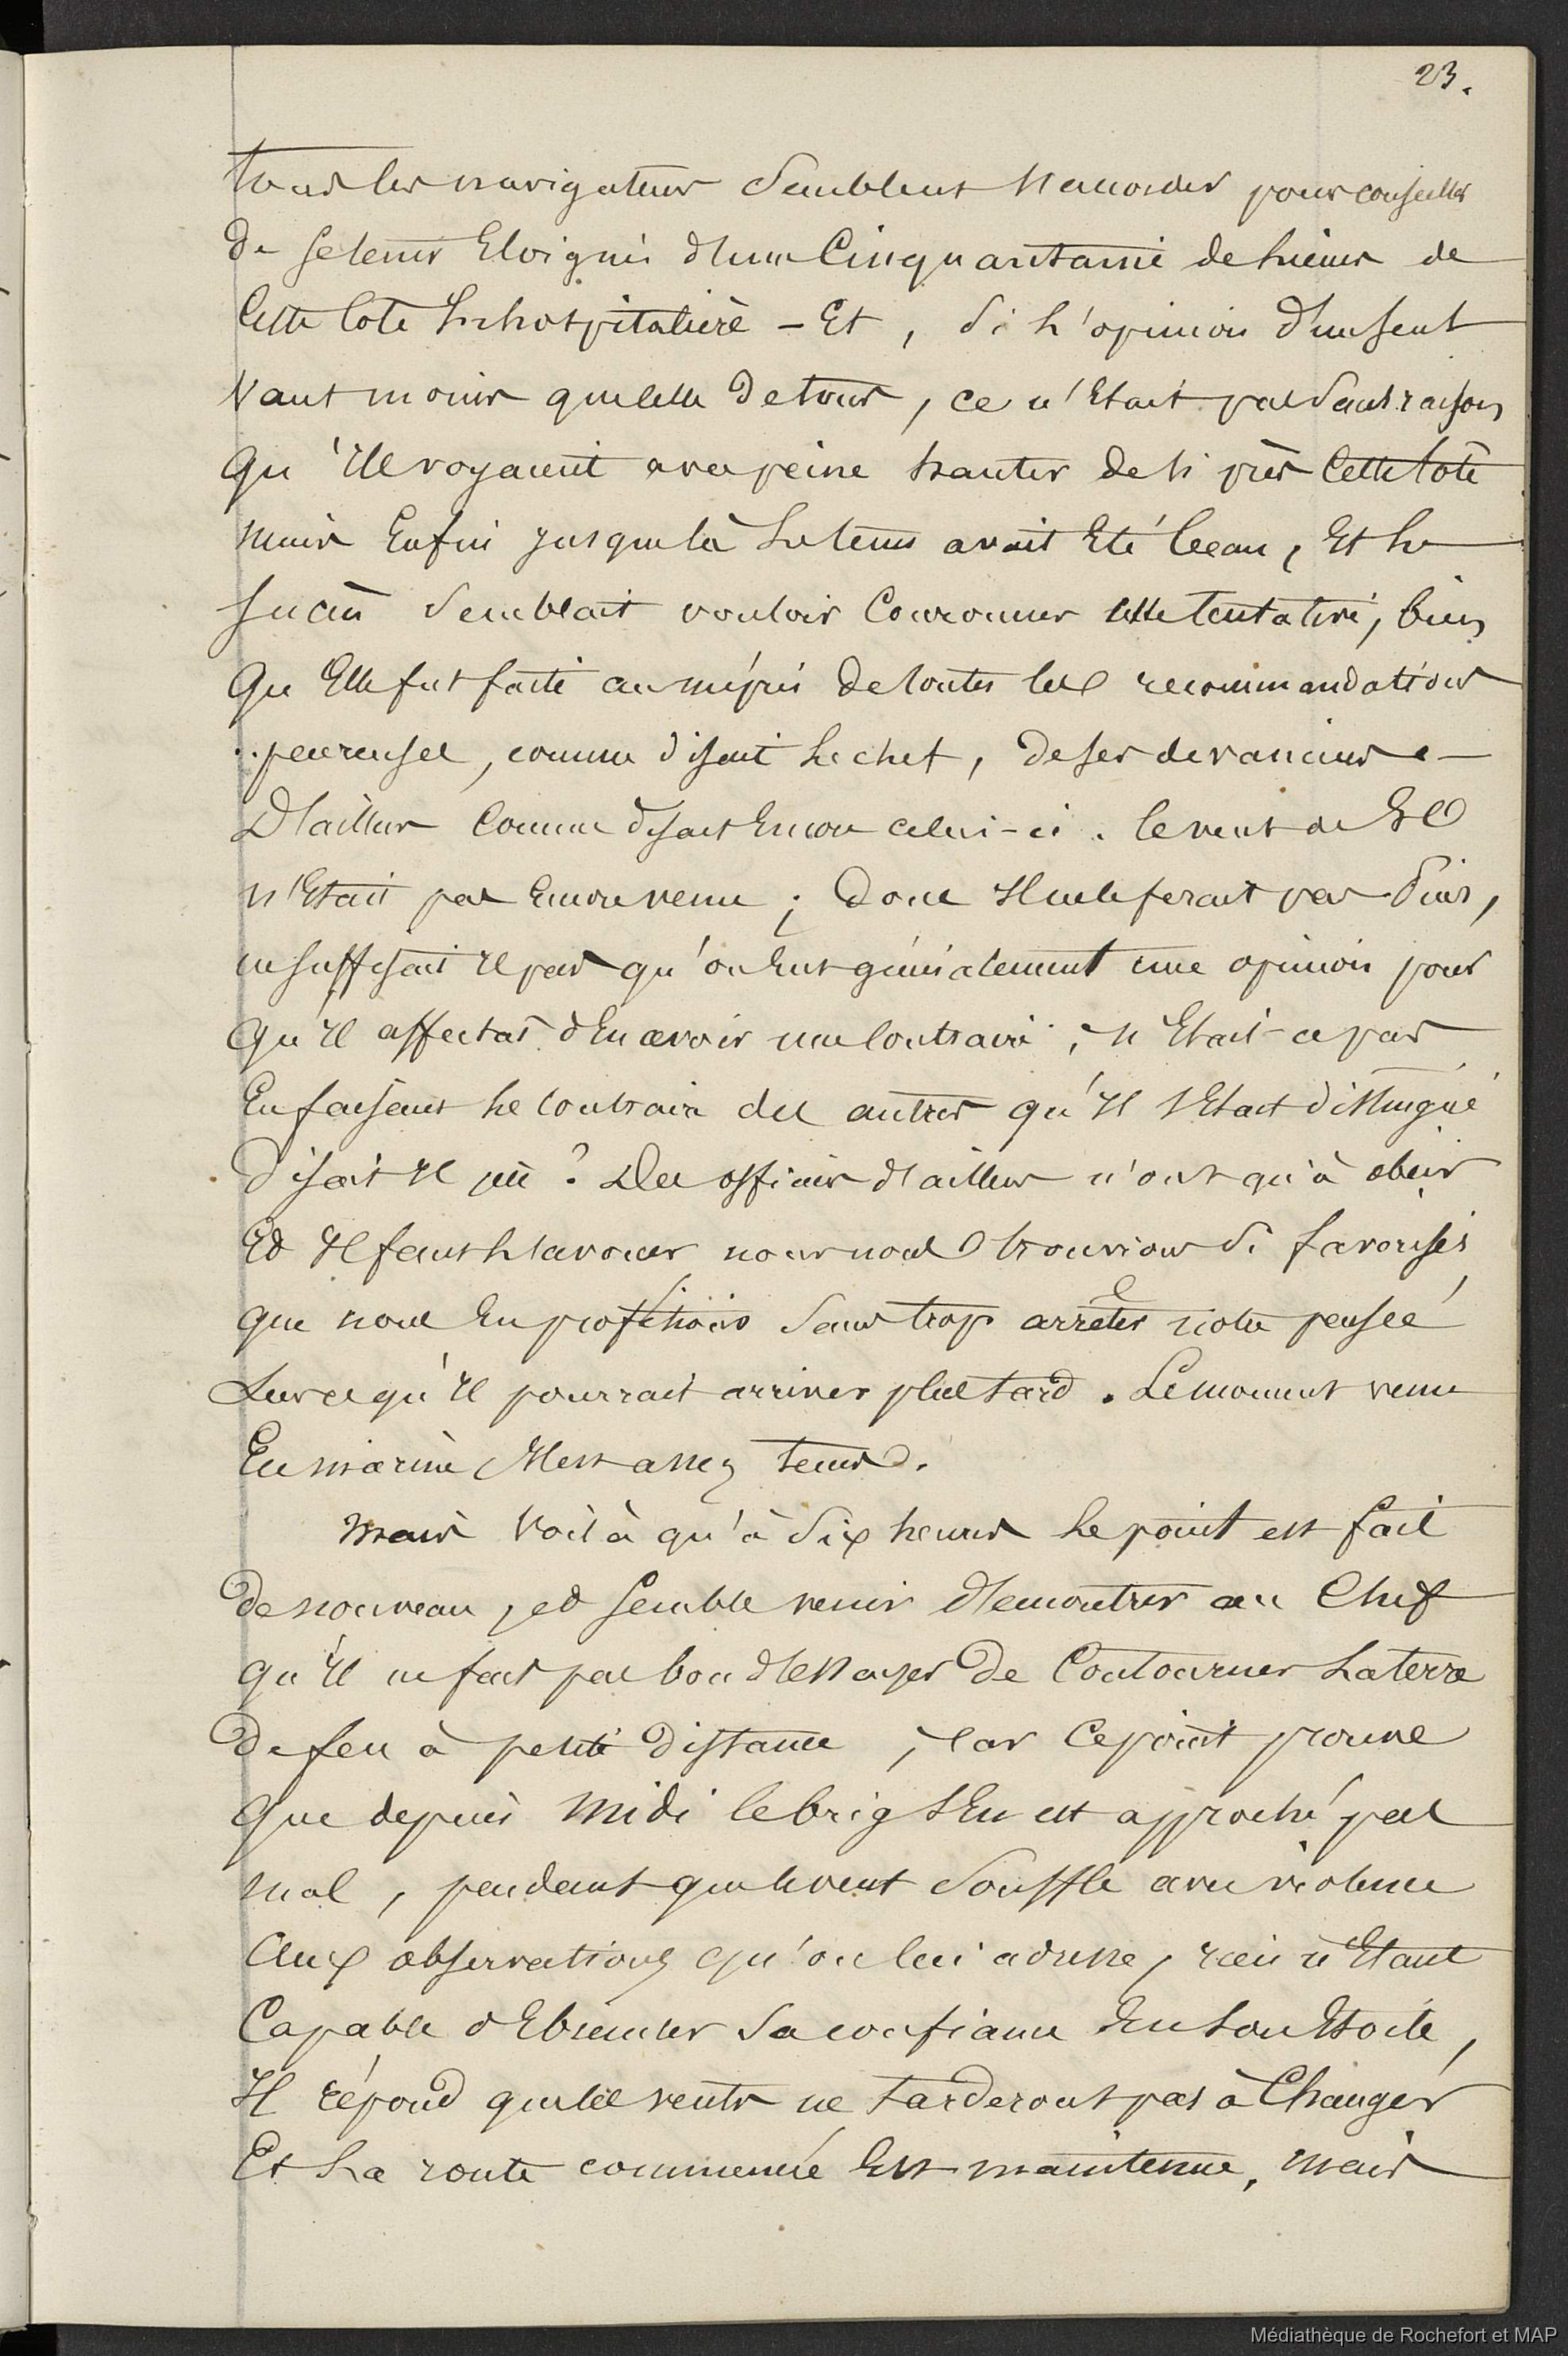 23.
Tous les navigateurs semblent s'accorder pour conseiller
de se tenir Eloignés d'une Cinquantaine de lieues de
Cette Cote Inhospitalière – Et, si l'opinion d'un seul
Vaut moins que celle de tous, ce n'Etait pas sans raison
Qu'Ils voyaient avec peine hanter de si près Cette Cote
Mais Enfin jusque là Le tems avait Eté beau, Et Le
succès semblait vouloir Couronner cette tentative, bien
Qu'Elle fut faite au mépris de toutes les recommandations
peureuses, comme disait Le chef, de ses devanciers –
D'ailleurs Comme disait Encore celui-ci. le vent de
n'Etait pas Encore venu ; donc Il ne le ferait pas
ne suffisait Il pas qu'on Eut généralement une opinion pour
Qu'Il affectat d'En avoir une Contraire ; n'Etait-ce pas
En faisant le Contraire des autres qu'Il s'Etait distingué
disait Il ? Des officiers d'ailleurs n'ont qu'à obéir
Et Il faut L'avouer nous nous trouvions si favorisés
que nous En profitions sans trop arrêter notre pensée
Sur ce qu'Il pourrait arriver plus tard. Le moment venu
En marine Il est assez tems.
Mais Voilà qu'à Six heures Le point est fait
de nouveau, et semble venir démontrer au Chef
qu'Il ne fait pas bon d'essayer de Contourner La terre
de feu à petite distance, Car Ce point prouve
Que depuis Midi le brig s'En est approché pas
mal, pendant que le vent Souffle avec violence
Aux observations qu'on lui adresse, rien n'Etant
Capable d'Ebranler Sa confiance En Son Etoile,
Il répond que les vents ne tarderont pas à Changer
Et La route commencée Est maintenue, mais
Médiathèque de Rochefort et MAP